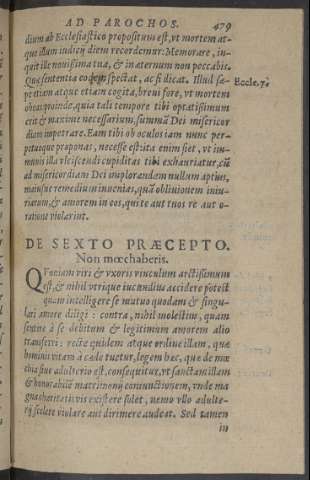 AD PAROCHOS. 479
dium ab Ecclesiastico propositum est, vt mortem at-
que illum iudicij diem recordemur: Memorare, in-
quit ille nouissima tua, & in aeternum non peccabis.
Quae sententia eodem spectat, ac si dicat. Illud sæ- Eccle. 7.
pe etiam atque etiam cogita, breui fore, vt mortem
obeas: proinde, quia tali tempore tibi optatissimum
erit & maxime necessarium, summā Dei misericor
diam impetrare. Eam tibi ob oculos iam nunc per-
petuoque proponas, necesse est: ita enim fiet, vt im-
manis illa vlciscendi cupiditas tibi exhauriatur, cū
ad misericordiam Dei implorandam nullum aptius,
maiusue remedium inuenias, quā obliuionem iniu-
riarum, & amorem in eos, qui te aut tuos re aut o-
ratione violarint.
DE SEXTO PRÆCEPTO.
Non mœchaberis.
QVoniam viri & vxoris vinculum arctissimum
est, & nihil vtrique iucundius accidere potest
quam intelligere se mutuo quodam & singu-
lari amore diligi: contra, nihil molestius, quam
sentire à se debitum & legitimum amorem alio
transferri: recte quidem atque ordine illam, quæ
hominis vitam à cæde tuetur, legem hæc, quæ de mœ
chia siue adulterio est, consequitur, vt sanctam illam
& honorabilē matrimonij coniunctionem, vnde ma
gna charitatis vis existere solet, nemo vllo adulte-
rij scelere violare aut dirimere audeat. Sed tamen
in